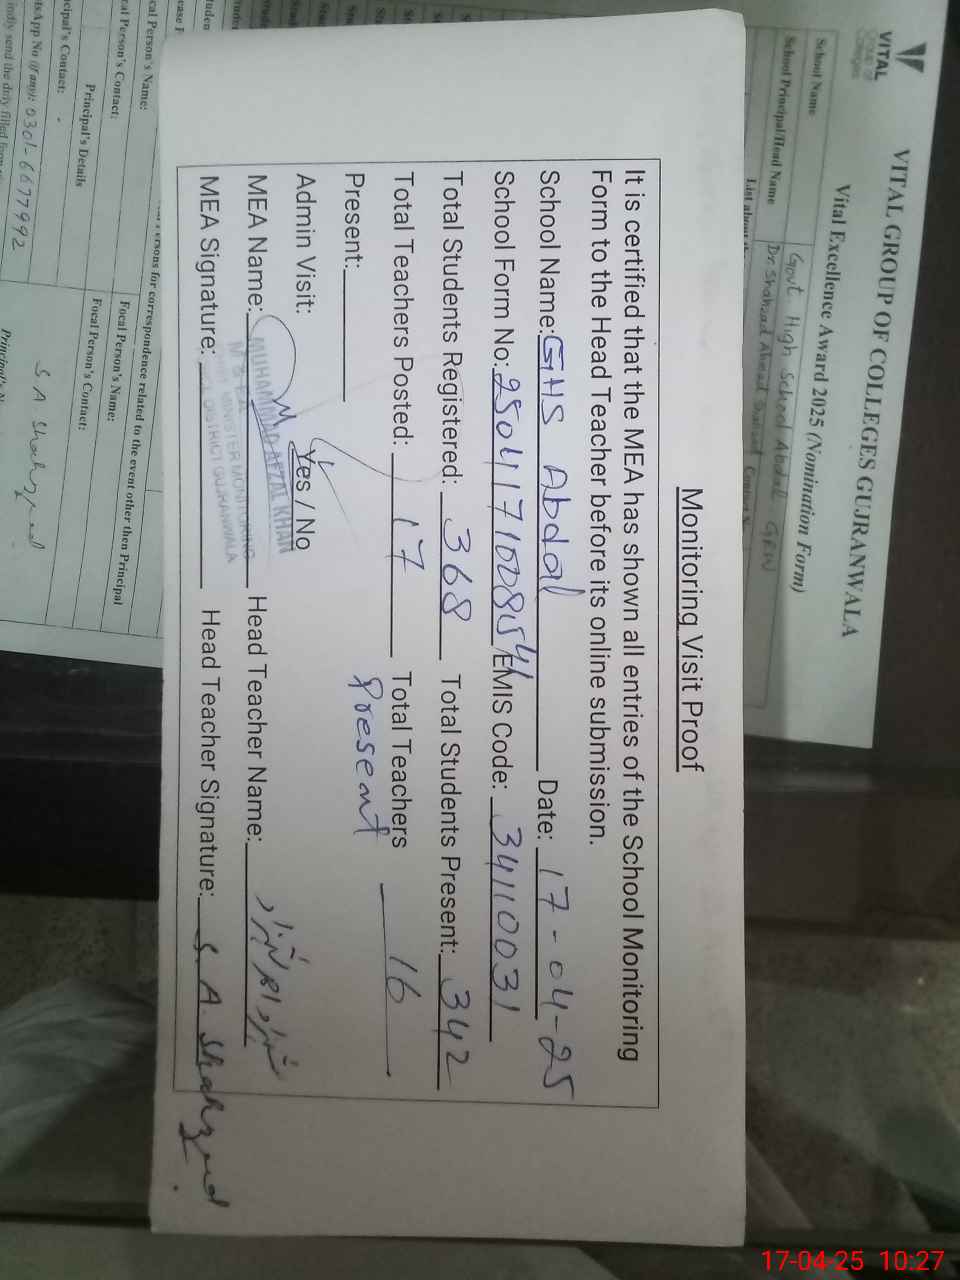 Monitoring Visit Proof
It is certified that the MEA has shown all entries of the School Monitoring
Form to the Head Teacher before its online submission.
School Name: GHS Abdal Date: 17-04-25
School Form No: EMIS Code: 34110031
Total Students Registered: 368 Total Students Present: 342
Total Teachers Posted: 17 Total Teachers 16
Present: Present
Admin Visit: Yes / No
MEA Name: MUHAMMAD AFZAL KHAN Head Teacher Name:
MINISTER MONITORING
DISTRICT GUJRANWALA
MEA Signature: Head Teacher Signature: S. A. Shahzad
VITAL
VITAL GROUP OF COLLEGES GUJRANWALA
Vital Excellence Award 2025 (Nomination Form)
School Name Govt High School Abdal GRW
School Principal/Head Name Dr. Shahzad Ahmad
List about
Persons for correspondence related to the event other then Principal
cal Person's Name: Focal Person's Name:
cal Person's Contact: Focal Person's Contact:
Principal's Details
cipal's Contact: -
tsApp No (if any): 0301-6677992 S A Shahzad
indly send the duly filled
17-04-25 10:27